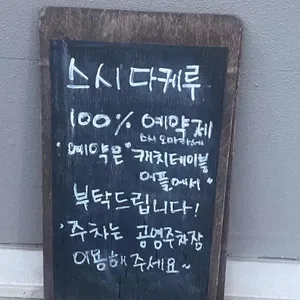 스시다케루
100% 예약제
스시 오마카세
"예약은 "캐치테이블
어플에서"
부탁드립니다!
"주차는 공영주차장
이용해주세요~